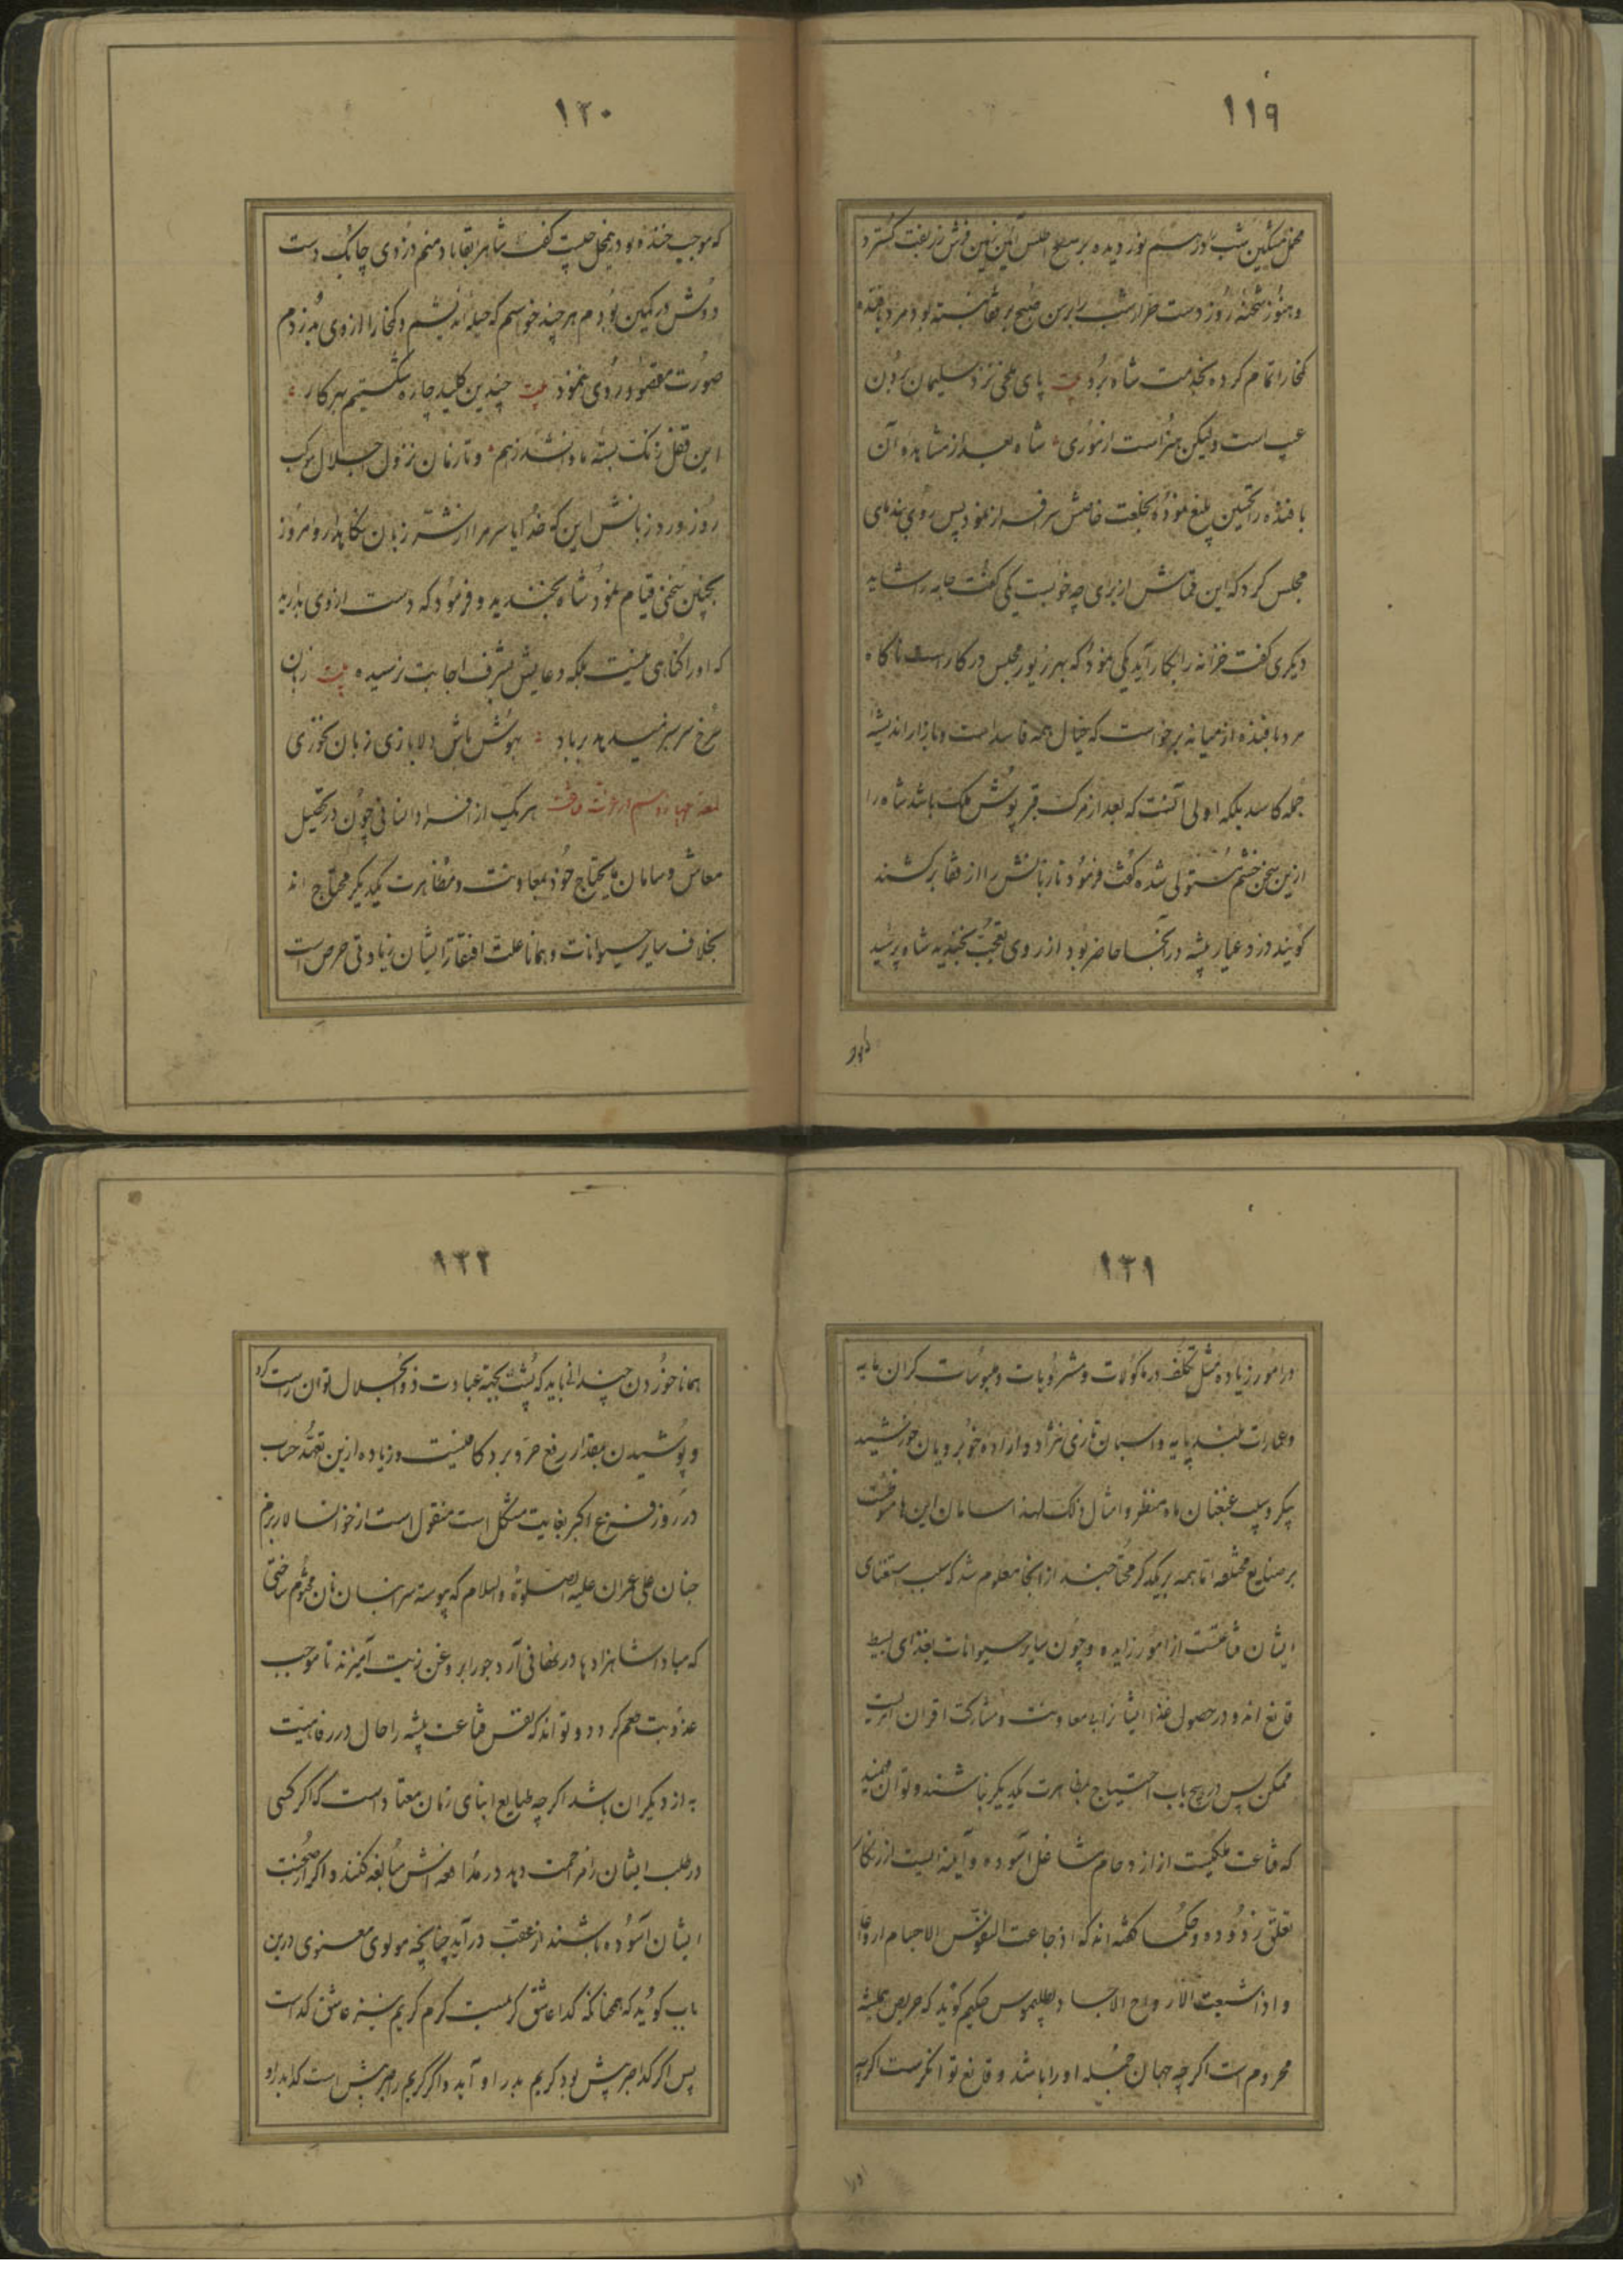 ۱۱۹
مخمل مشکین شب در هم نوردیده بر سطح اطلس آئین زمین فرش زربفت گسترد
و هنوز شحنه روز دست طرار شب را برسن صبح بر قفا نبسته بود مرد بافنده
کمخا را تمام کرده بخدمت شاه برد بیت پای ملخی نزد سلیمان بردن
عیب است ولیکن هنر است از موری شاه بعد از مشاهده آن
بافنده را تحسین بلیغ نموده بخلعت خاصش سرافراز نمود پس روی بندمای
مجلس کرد که این قماش از برای چه خوبست یکی گفت جامه را شاید
دیگری گفت خزانه را بکار آید یکی نمود که بهر زیور مجلس در کار است ناگاه
مرد بافنده از میانه برخواست که خیال همه فاسد است و بازار اندیشه
جمله کاسد بلکه اولی آنست که بعد از مرگ قبر پوش ملک باشد شاه را
ازین سخن خشم مستولی شده گفت فرمود تا زبانش را از قفا برکشند
گویند دزد عیار پیشه در آنجا حاضر بود از روی تعجب بخندید شاه پرسید
۱۲۰
که موجب خنده بود درین محل چیست گفت شاها بقا باد منم دزدی چابک دست
دوش در کمین بودم هر چند خواستم که حیله اندیشم و کمخا را از وی بدزدم
صورت مقصود روی ننمود بیت چندین کلید چاره شکستیم بهر کار
این قفل زنگ بسته ما وا نشد ز هم و تا زمان نزول اجلال موکب
روز ورد زبانش این که خدایا سر مرا از شر زبان نگاهدار و امروز
بچنین سخنی قیام نمود شاه بخندید و فرمود که دست از وی بدارید
که او را گناهی نیست بلکه دعایش بشرف اجابت نرسیده بیت زبان
سرخ سر سبز میدهد بر باد بهوش باش دلا بازی زبان نخوری
لمعه چهاردهم در عزت قناعت هر یک از افراد انسانی چون در تحصیل
معاش و سامان مایحتاج خود بمعاونت و مظاهرت یکدیگر محتاج اند
بخلاف سایر حیوانات و همانا علت افتقار ایشان زیادتی حرص است
۱۲۱
در امور زیاده مثل تکلف در ماکولات و مشروبات و ملبوسات گران مایه
و عمارات بلند پایه و اسبان تازی نژاد و اراده خوبرویان خورشید
پیکر و سیب غبغبان ماه منظر و امثال ذلک لهذا سامان این ها موقوفست
بر صنایع مختلفه تا همه بر یکدیگر محتاجند از اینجا معلوم شد که سبب استغنای
ایشان قناعتست از امور زایده و چون سایر حیوانات بغذای بسیط
قانع اند و در حصول غذا ایشانرا بی معاونت و مشارکت اقران امریست
ممکن پس در هیچ باب احتیاج بمظاهرت یکدیگر نباشند و توان فهمید
که قناعت ملکیست از ازدحام مشاغل آسوده و آینه ایست از زنگار
تعلق زدوده و حکما گفته اند که اذ جاعت النفوس الاجسام ارواحا
و اذا شبعت الارواح الاجساد بطلیموس حکیم گوید که حریص همیشه
محروم است اگرچه جهان جمله او را باشد و قانع توانگر است اگرچه
۱۲۲
همانا خوردن چندانی باید که پشت بجهة عبادت ذوالجلال توان راست کرد
و پوشیدن بمقدار رفع حر و برد کافیست و زیاده ازین تعهد حساب
در روز فزع اکبر بغایت مشکل است منقول است از خوانسالار بزم
جنان علی عمران علیه الصلوة والسلام که پیوسته سر انبان نان مختوم ساختی
که مبادا شاهزادها در نهانی آرد جو را بروغن زیت آمیزند تا موجب
عذوبت طعم گردد و تواند که نفس قناعت پیشه را حال در رفاهیت
به از دیگران باشد اگر چه طبایع ابنای زمان معتاد است که اگر کسی
در طلب ایشان را مزاحمت دهد در مدافعه اش مبالغه کنند و اگر از صحبت
ایشان آسوده باشند از عقب در آید چنانچه مولوی معنوی درین
باب گوید که همچنانکه گدا عاشق کرمست کرم کریم نیز عاشق گداست
پس اگر گدا صبرش بیش بود کریم بدر او آید و اگر کریم را صبر بیش است گدا بدر او